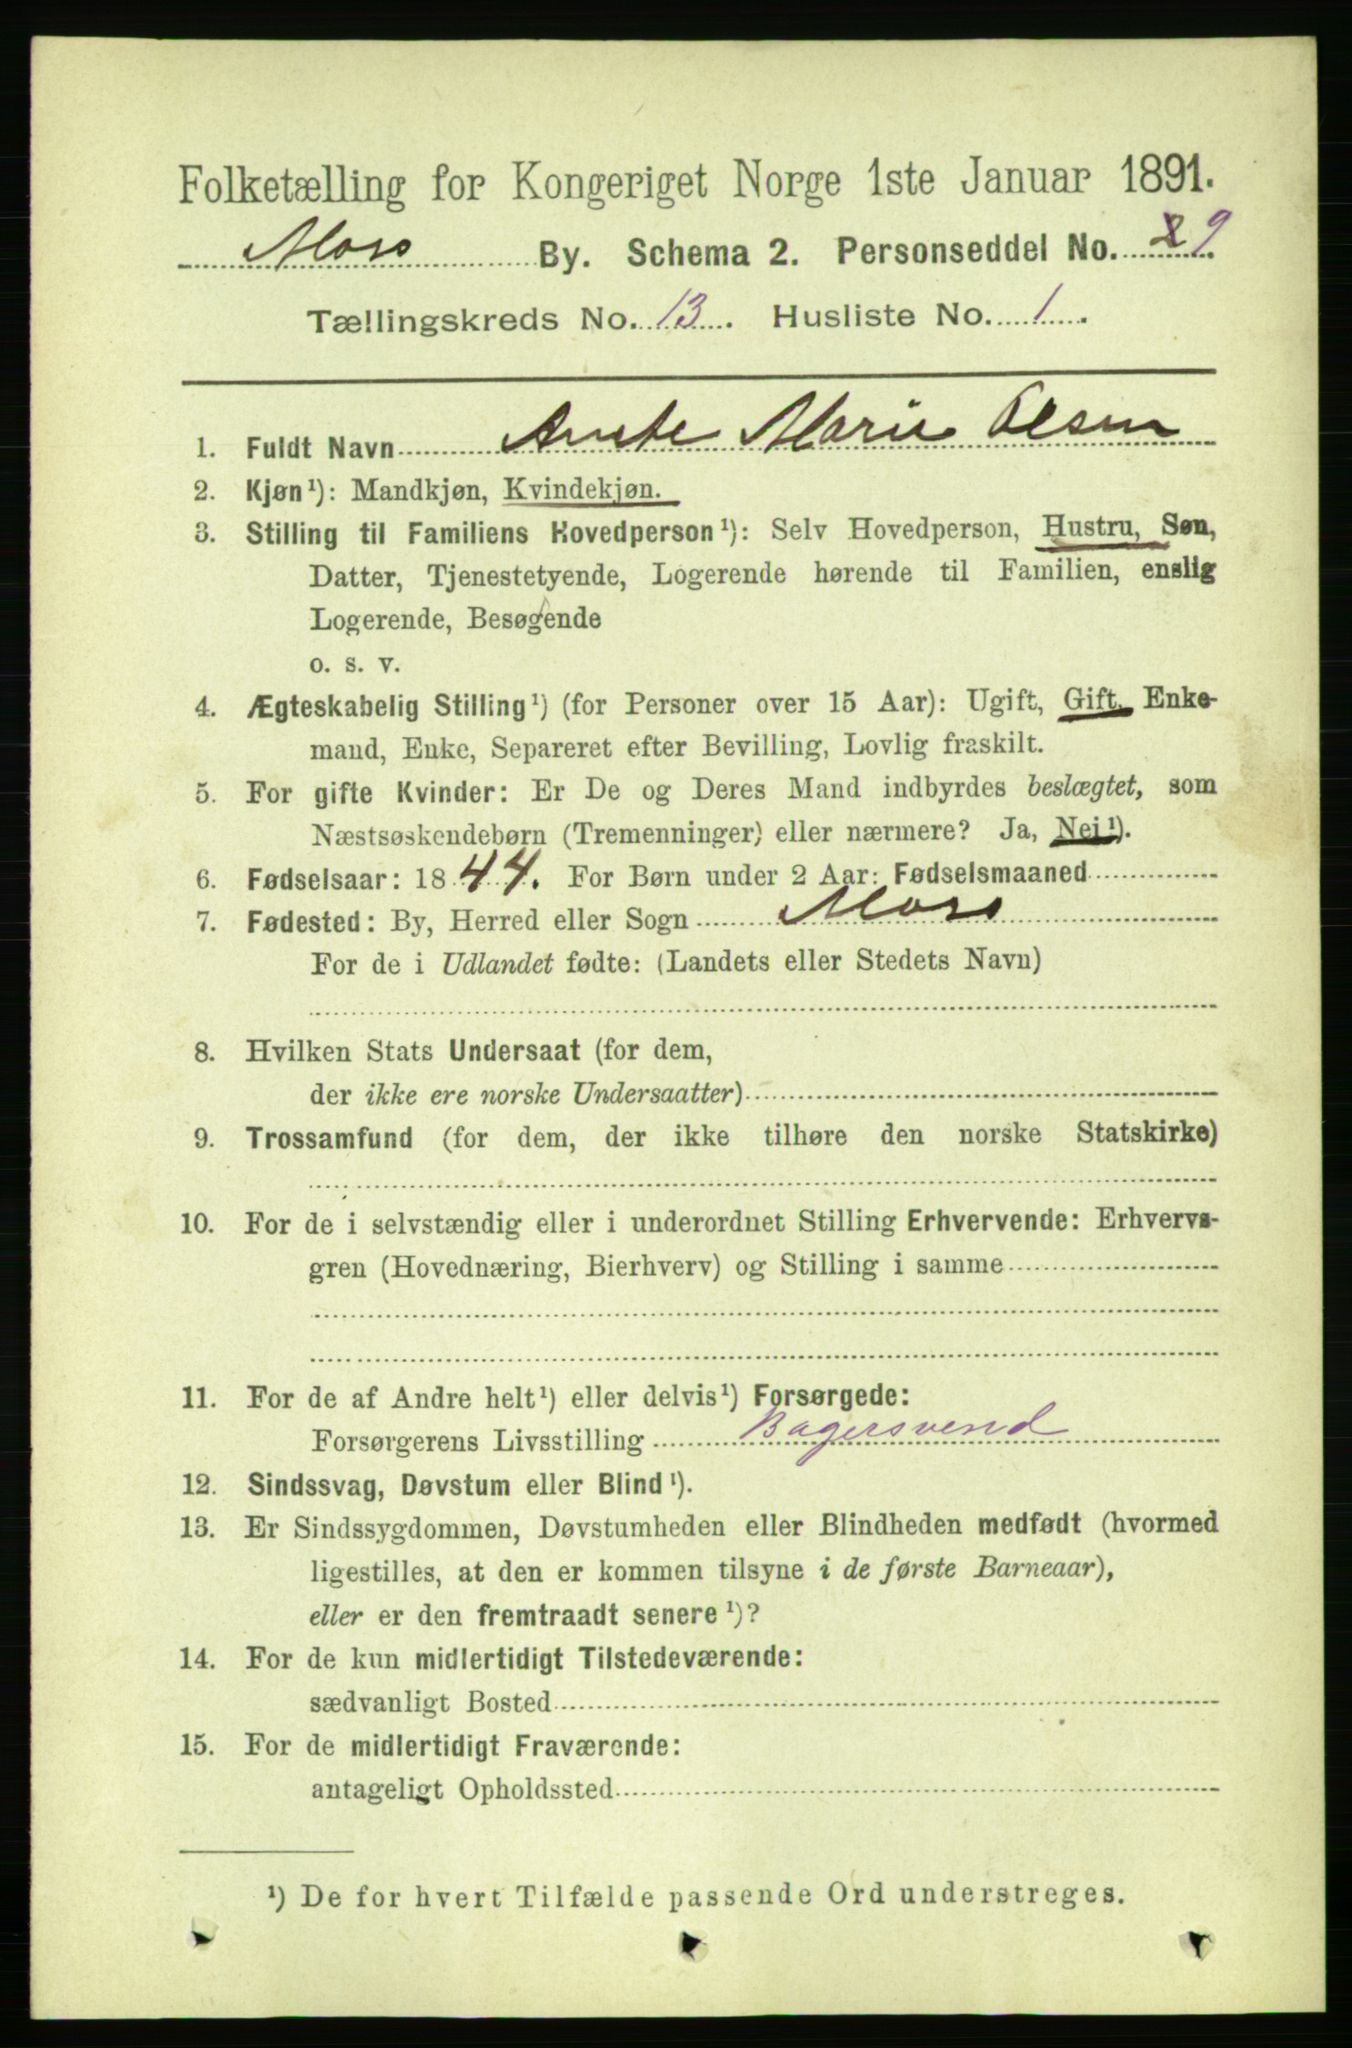 Folketælling for Kongeriget Norge 1ste Januar 1891.
Moss By. Schema 2. Personseddel No. 9
Tællingskreds No. 13. Husliste No. 1.
1. Fuldt Navn Anete Marie Olsen
2. Kjøn¹): Mandkjøn, Kvindekjøn.
3. Stilling til Familiens Hovedperson¹): Selv Hovedperson, Hustru, Søn,
Datter, Tjenestetyende, Logerende hørende til Familien, enslig
Logerende, Besøgende
o. s. v.
4. Ægteskabelig Stilling¹) (for Personer over 15 Aar): Ugift, Gift, Enke-
mand, Enke, Separeret efter Bevilling, Lovlig fraskilt.
5. For gifte Kvinder: Er De og Deres Mand indbyrdes beslægtet, som
Næstsøskendebørn (Tremenninger) eller nærmere? Ja, Nei¹).
6. Fødselsaar: 1844. For Børn under 2 Aar: Fødselsmaaned
7. Fødested: By, Herred eller Sogn Moss
For de i Udlandet fødte: (Landets eller Stedets Navn)
8. Hvilken Stats Undersaat (for dem,
der ikke ere norske Undersaatter)
9. Trossamfund (for dem, der ikke tilhøre den norske Statskirke)
10. For de i selvstændig eller i underordnet Stilling Erhvervende: Erhvervs-
gren (Hovednæring, Bierhverv) og Stilling i samme
11. For de af Andre helt¹) eller delvis¹) Forsørgede:
Forsørgerens Livsstilling Bagersvend
12. Sindssvag, Døvstum eller Blind¹).
13. Er Sindssygdommen, Døvstumheden eller Blindheden medfødt (hvormed
ligestilles, at den er kommen tilsyne i de første Barneaar),
eller er den fremtraadt senere¹)?
14. For de kun midlertidigt Tilstedeværende:
sædvanligt Bosted
15. For de midlertidigt Fraværende:
antageligt Opholdssted
¹) De for hvert Tilfælde passende Ord understreges.